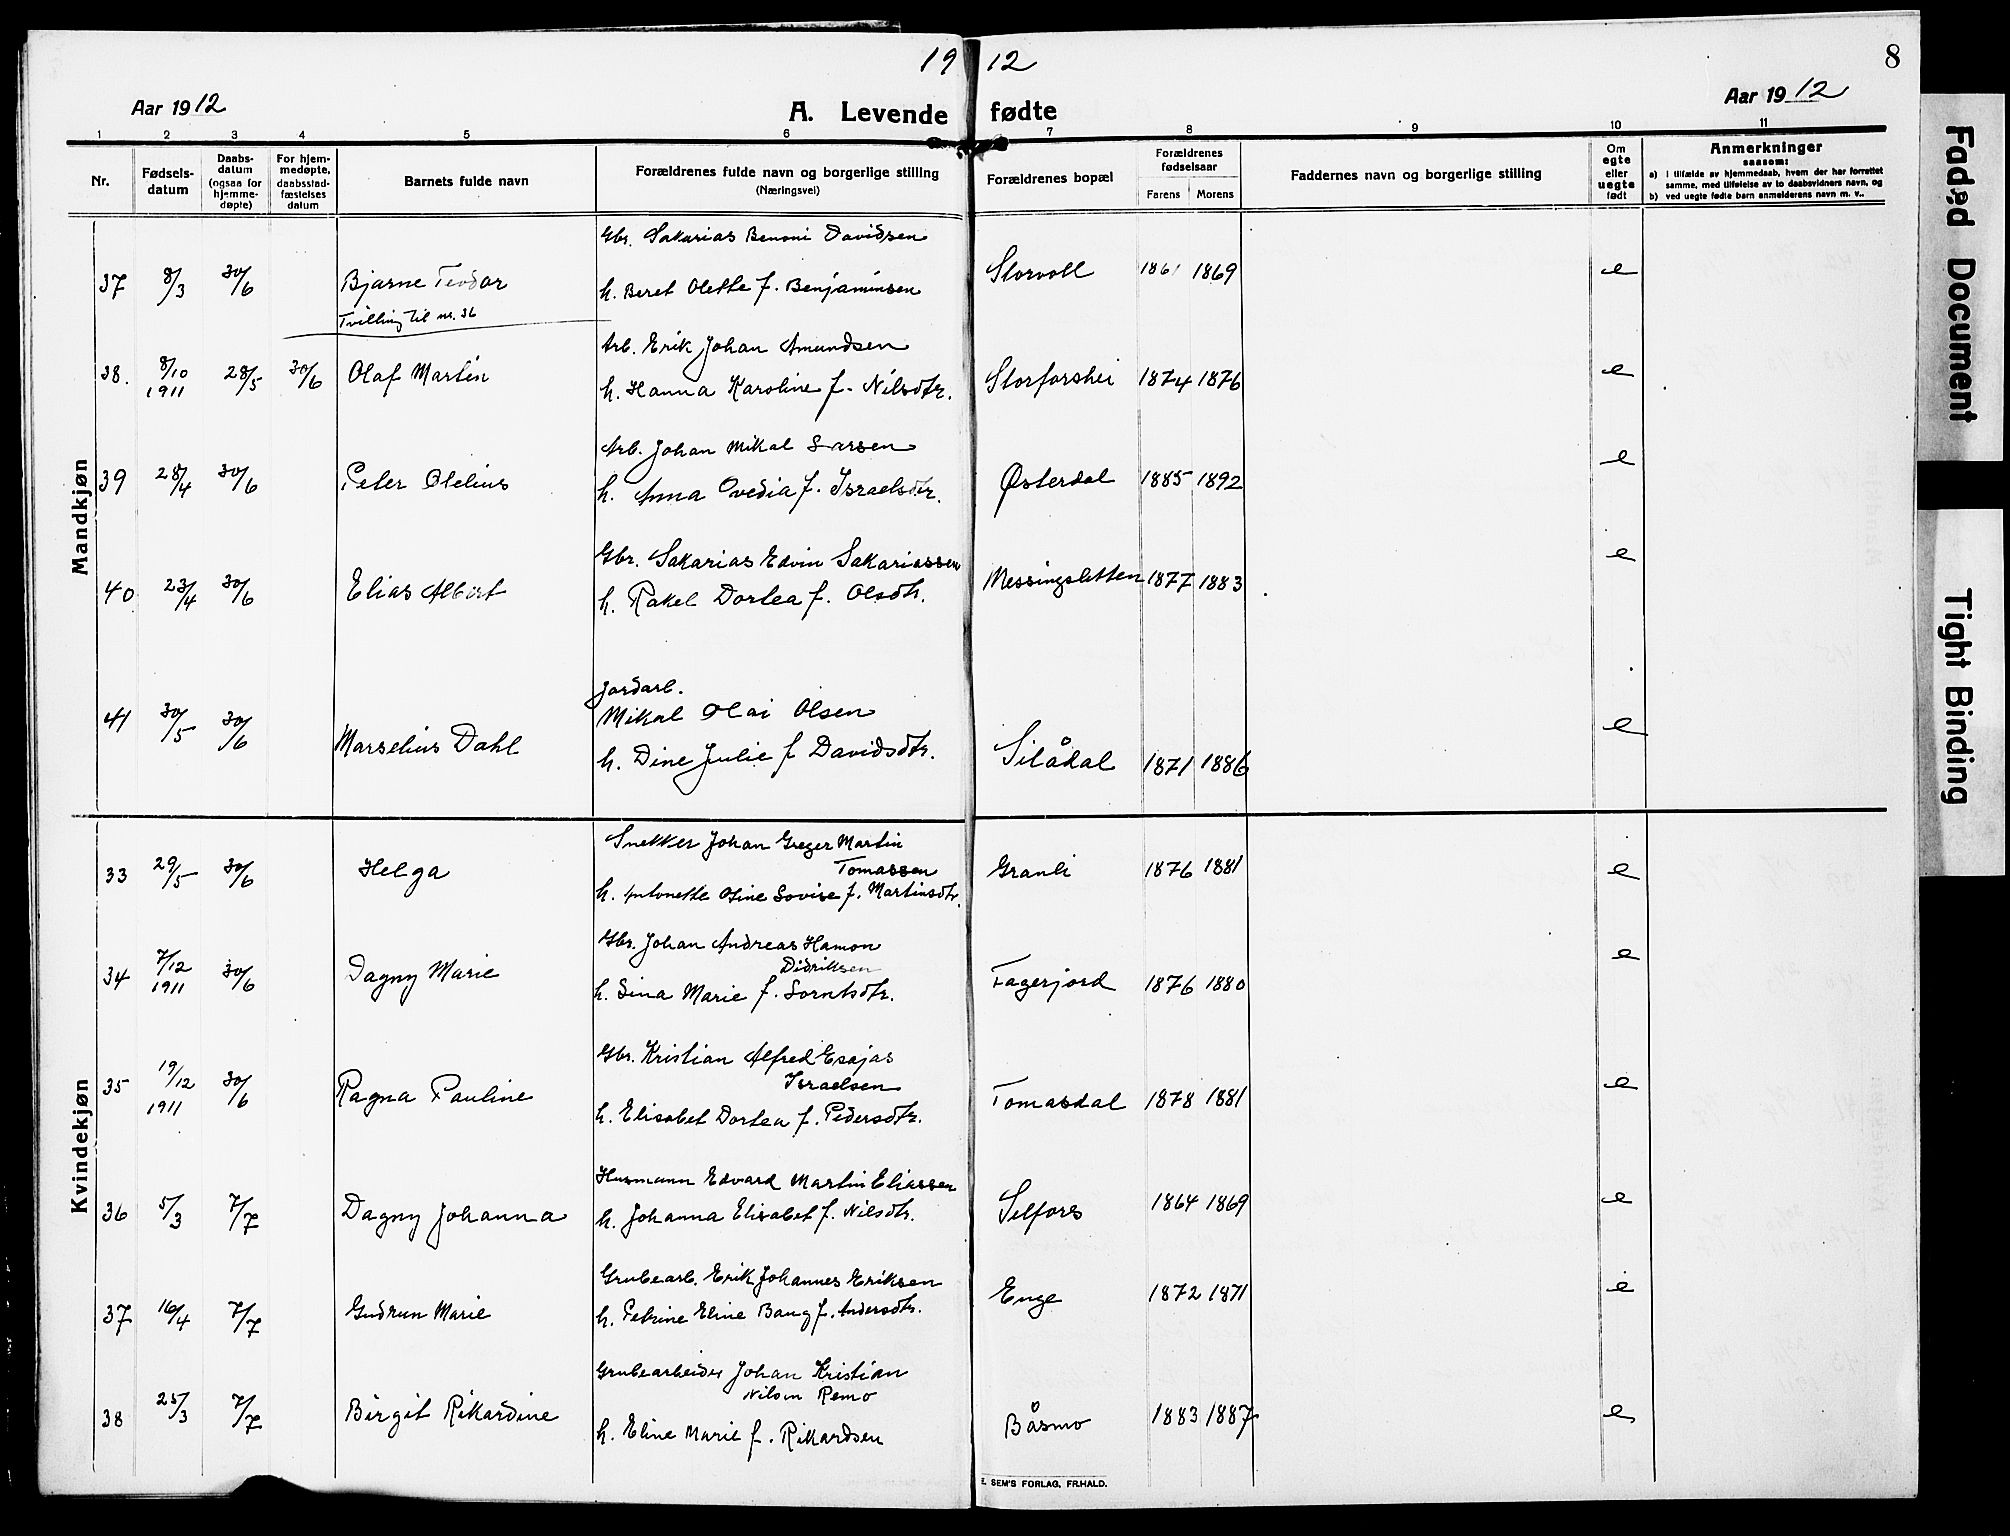 1912
8
Aar 1912
A. Levende fødte
Aar 1912
1 2 3 4 5 6 7 8 9 10 11
Nr.
Fødselsdatum
Daabsdatum (ogsaa for hjemmedøpte)
For hjemmedøpte, daabsstadfæstelses datum
Barnets fulde navn
Forældrenes fulde navn og borgerlige stilling
(Næringsvei)
Forældrenes bopæl
Forældrenes fødselsaar
Farens Morens
Faddernes navn og borgerlige stilling
Om egte eller uegte født
Anmerkninger
saasom:
a) i tilfælde av hjemmedaab, hvem der har forrettet
samme, med tilføielse av to daabsvidners navn, og
b) ved uegte fødte barn anmelderens navn m. v..
Mandkjøn
Gbr. Sakarias Benoni Davidsen
37 8/3 30/6 Bjarne Teodor h. Beret Olette f. Benjaminsen Storvoll 1861 1869 e
Tvilling til nr. 36
Arb. Erik Johan Amundsen
38. 8/10 1911 28/5 30/6 Olaf Martin h. Hanna Karoline f. Nilsdtr. Storforshei 1874 1876 e
Arb. Johan Mikal Larsen
39 28/4 30/6 Peter Olelius h. Anna Ovedia f. Israelsdtr. Østerdal 1885 1892 e
Gbr. Sakarias Edvin Sakariassen
40 23/4 30/6 Elias Albert h. Rakel Dortea f. Olsdtr. Messingsletten 1877 1883 e
Jordarb.
Mikal Olai Olsen
41 30/5 30/6 Marselius Dahl h. Dine Julie f Davidsdtr. Silådal 1871 1886 e
Kvindekjøn
Snekker Johan Greger Martin
Tomassen
33 29/5 30/6 Helga h. Antonette Oline Lovise f. Martinsdtr. Granli 1876 1881 e
Gbr. Johan Andreas Hamon
Didriksen
34 7/12 1911 30/6 Dagny Marie h. Sina Marie f. Sorntsdtr. Fagerjord 1876 1880 e
Gbr. Kristian Alfred Esajas
Israelsen
35 19/12 1911 30/6 Ragna Pauline h. Elisabet Dortea f. Pedersdtr. Tomasdal 1878 1881 e
Husmann Edvard Martin Eliassen
36 5/3 7/7 Dagny Johanna h. Johanna Elisabet f. Nilsdtr. Selfors 1864 1869 e
Grubearb. Erik Johannes Eriksen
37 16/4 7/7 Gudrun Marie h. Petrine Eline Baug f. Andersdtr. Enge 1872 1871 e
Grubearbeider Johan Kristian
Nilsen Remo
38 25/3 7/7 Birgit Rikardine h. Eline Marie f. Rikardsen Båsmo 1883 1887 e
E. SEM'S FORLAG, FR.HALD.
Faded Document
Tight Binding